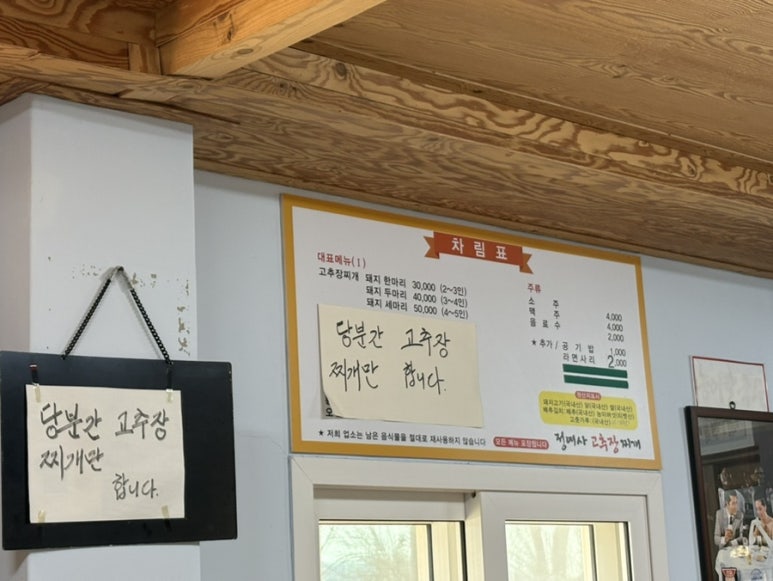 차림표
대표메뉴(1)
고추장찌개 돼지 한마리 30,000 (2~3인)
돼지 두마리 40,000 (3~4인)
돼지 세마리 50,000 (4~5인)
당분간 고추장
찌개만 합니다.
* 저희 업소는 남은 음식물을 절대로 재사용하지 않습니다
모든 메뉴 포장됩니다
주류
소주 4,000
맥주 4,000
음료수 2,000
★ 추가 / 공기밥 1,000
라면사리 2,000
원산지표시
돼지고기(국내산) 닭(국내산) 쌀(국내산)
배추김치: 배추(국내산)
고춧가루 (국내산)
고추장찌개
당분간 고추장
찌개만
합니다.